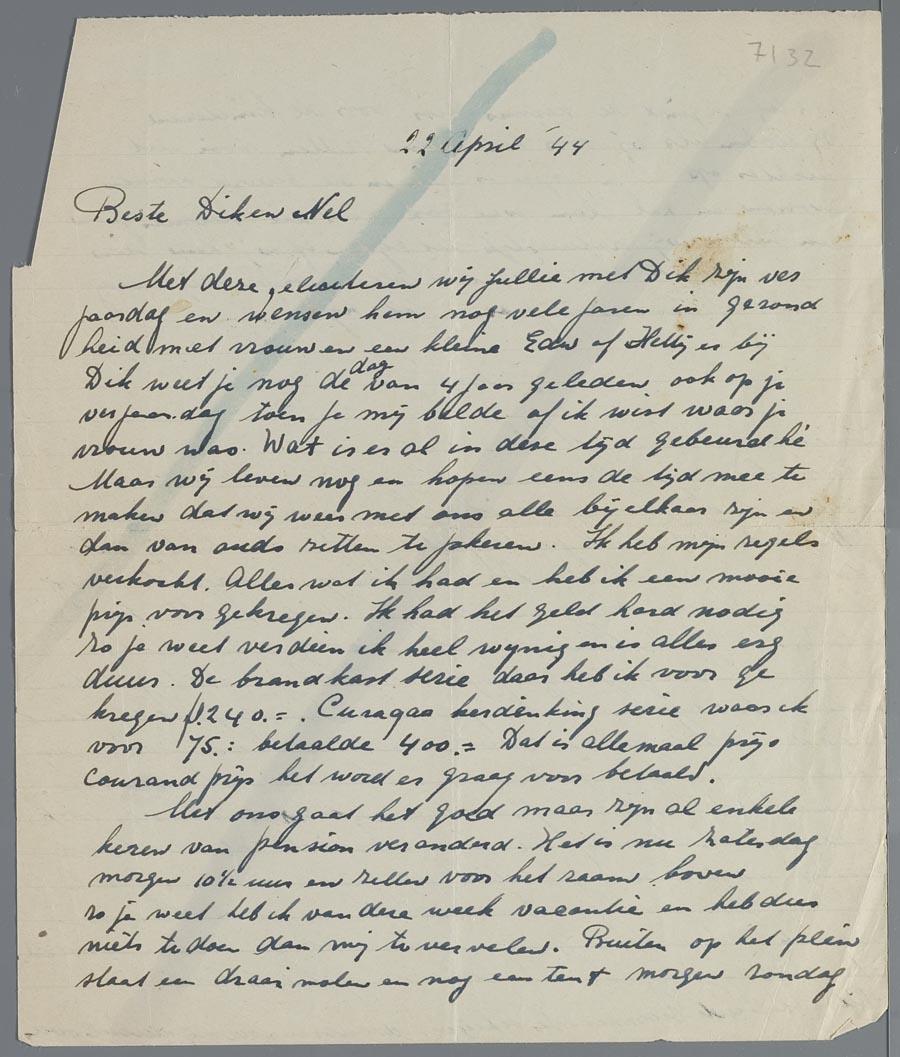 7132
22 April '44
Beste Dik en Nel
Met deze feliciteren wij Jullie met Dik zijn ver
jaardag en wensen hem nog vele jaren in gezond
heid met vrouw en een kleine Edw of Hetty er bij
Dik weet je nog de dag van 4 jaar geleden ook op je
verjaardag toen je mij belde of ik wist waar je
vrouw was. Wat is er al in deze tijd gebeurd hé
Maar wij leven nog en hopen eens de tijd mee te
maken dat wij weer met ons alle bij elkaar zijn en
dan van ouds zitten te pkeren. Ik heb mijn zegels
verkocht. Alles wat ik had en heb ik een mooie
prijs voor gekregen. Ik had het geld hard nodig
zo je weet verdien ik heel wijnig en is alles erg
duur. De brandkast serie daar heb ik voor ge
kregen f 240.=. Curaçao herdenking serie waar ik
voor 75.= betaalde 400.= Dat is allemaal prijs
courand prijs het word er graag voor betaald.
Met ons gaat het goed maar zijn al enkele
keren van pension veranderd. Het is nu zaterdag
morgen 10½ uur en zitten voor het raam boven
zo je weet heb ik van deze week vacantie en heb dus
niets te doen dan mij te vervelen. Buiten op het plein
staat een draaimolen en nog een tent morgen zondag